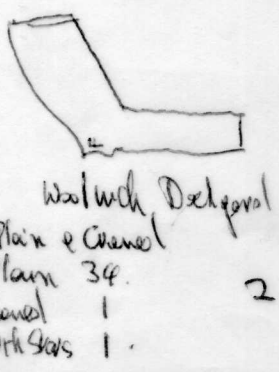 Woolwich Dockyard
Plain & Crowned
Plain 34.
owned 1
2
ith Stars 1.